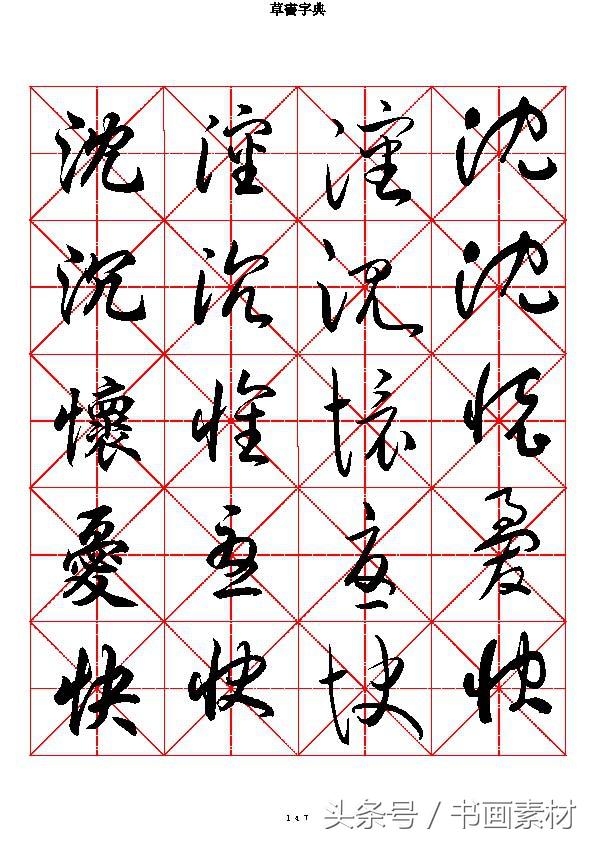 草書字典
沈 沈
沉 沈
懷 懷 懷
憂 憂 憂 憂
快 快 快 快
147
头条号 / 书画素材